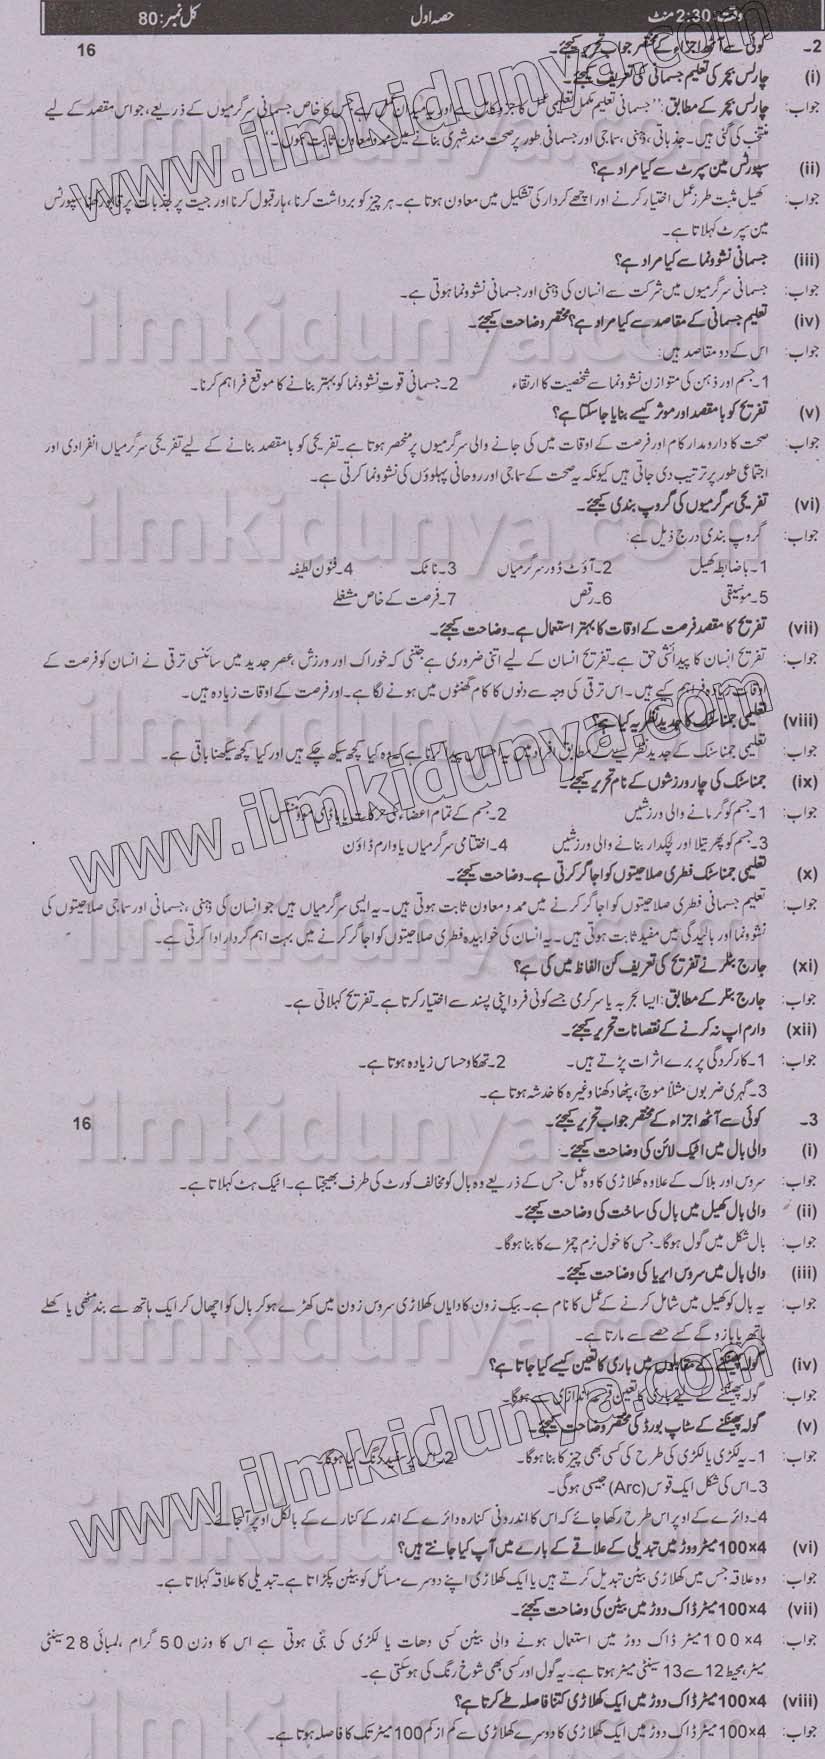 وقت: 2:30 منٹ حصہ اول کل نمبر: 80
2۔ کوئی سے آٹھ اجزاء کے مختصر جواب تحریر کیجئے۔ 16
(i) چارلس بچر کی تعلیم جسمانی کی تعریف کیجئے۔
جواب: چارلس بچر کے مطابق: "جسمانی تعلیم مکمل تعلیمی عمل کا جزو کامل ہے اور یہ میدان عمل ہے جس کا خاص جسمانی سرگرمیوں کے ذریعے، جو اس مقصد کے لیے
منتخب کی گئی ہیں۔ جذباتی، ذہنی، سماجی اور جسمانی طور پر صحت مند شہری بنانے میں ممد و معاون ثابت ہوں۔"
(ii) سپورٹس مین سپرٹ سے کیا مراد ہے؟
جواب: کھیل مثبت طرز عمل اختیار کرنے اور اچھے کردار کی تشکیل میں معاون ہوتا ہے۔ ہر چیز کو برداشت کرنا، ہار قبول کرنا اور جیت پر جذبات پر قابو رکھنا سپورٹس
مین سپرٹ کہلاتا ہے۔
(iii) جسمانی نشوونما سے کیا مراد ہے؟
جواب: جسمانی سرگرمیوں میں شرکت سے انسان کی ذہنی اور جسمانی نشوونما ہوتی ہے۔
(iv) تعلیم جسمانی کے مقاصد سے کیا مراد ہے؟ مختصر وضاحت کیجئے۔
جواب: اس کے دو مقاصد ہیں:
1۔ جسم اور ذہن کی متوازن نشوونما سے شخصیت کا ارتقاء 2۔ جسمانی قوت نشوونما کو بہتر بنانے کا موقع فراہم کرنا۔
(v) تفریح کو بامقصد اور موثر کیسے بنایا جا سکتا ہے؟
جواب: صحت کا دارومدار کام اور فرصت کے اوقات میں کی جانے والی سرگرمیوں پر منحصر ہوتا ہے۔ تفریحی کو بامقصد بنانے کے لیے تفریحی سرگرمیاں انفرادی اور
اجتماعی طور پر ترتیب دی جاتی ہیں کیونکہ یہ صحت کے سماجی اور روحانی پہلوؤں کی نشوونما کرتی ہے۔
(vi) تفریحی سرگرمیوں کی گروپ بندی کیجئے۔
جواب: گروپ بندی درج ذیل ہے:
1۔ باضابطہ کھیل 2۔ آؤٹ ڈور سرگرمیاں 3۔ ناٹک 4۔ فنون لطیفہ
5۔ موسیقی 6۔ رقص 7۔ فرصت کے خاص مشغلے
(vii) تفریح کا مقصد فرصت کے اوقات کا بہتر استعمال ہے۔ وضاحت کیجئے۔
جواب: تفریح انسان کا پیدائشی حق ہے۔ تفریح انسان کے لیے اتنی ضروری ہے جتنی کہ خوراک اور ورزش، عصر جدید میں سائنسی ترقی نے انسان کو فرصت کے
اوقات زیادہ فراہم کیے ہیں۔ اس ترقی کی وجہ سے دنوں کا کام گھنٹوں میں ہونے لگا ہے۔ اور فرصت کے اوقات زیادہ ہیں۔
(viii) تعلیمی جمناسٹک کا جدید نظریہ کیا ہے؟
جواب: تعلیمی جمناسٹک کے جدید نظریے کے مطابق افراد میں یہ احساس پیدا کرنا ہے کہ وہ کیا کچھ سیکھ چکے ہیں اور کیا کچھ سیکھنا باقی ہے۔
(ix) جمناسٹک کی چار ورزشوں کے نام تحریر کیجئے۔
جواب: 1۔ جسم کو گرمانے والی ورزشیں 2۔ جسم کے تمام اعضاء کی حرکات یا باڈی موومنٹس
3۔ جسم کو پھرتیلا اور لچکدار بنانے والی ورزشیں 4۔ اختتامی سرگرمیاں یا وارم ڈاؤن
(x) تعلیمی جمناسٹک فطری صلاحیتوں کو اجاگر کرتی ہے۔ وضاحت کیجئے۔
جواب: تعلیم جسمانی فطری صلاحیتوں کو اجاگر کرنے میں ممد و معاون ثابت ہوتی ہیں۔ یہ ایسی سرگرمیاں ہیں جو انسان کی ذہنی، جسمانی اور سماجی صلاحیتوں کی
نشوونما اور بالیدگی میں مفید ثابت ہوتی ہیں۔ یہ انسان کی خوابیدہ فطری صلاحیتوں کو اجاگر کرنے میں بہت اہم کردار ادا کرتی ہے۔
(xi) جارج بٹلر نے تفریح کی تعریف کن الفاظ میں کی ہے؟
جواب: جارج بٹلر کے مطابق: ایسا تجربہ یا سرگرمی جسے کوئی فرد اپنی پسند سے اختیار کرتا ہے۔ تفریح کہلاتی ہے۔
(xii) وارم اپ نہ کرنے کے نقصانات تحریر کیجئے۔
جواب: 1۔ کارکردگی پر برے اثرات پڑتے ہیں۔ 2۔ تھکاوٹ حساس زیادہ ہوتا ہے۔
3۔ گہری ضربوں مثلاً موچ، پٹھا دکھنا وغیرہ کا خدشہ ہوتا ہے۔
3۔ کوئی سے آٹھ اجزاء کے مختصر جواب تحریر کیجئے۔ 16
(i) والی بال میں اٹیک لائن کی وضاحت کیجئے۔
جواب: سروس اور بلاک کے علاوہ کھلاڑی کا وہ عمل جس کے ذریعے وہ بال کو مخالف کورٹ کی طرف بھیجتا ہے۔ اٹیک ہٹ کہلاتا ہے۔
(ii) والی بال کھیل میں بال کی ساخت کی وضاحت کیجئے۔
جواب: بال شکل میں گول ہوگا۔ جس کا خول نرم چمڑے کا بنا ہوگا۔
(iii) والی بال میں سروس ایریا کی وضاحت کیجئے۔
جواب: یہ بال کو کھیل میں شامل کرنے کے عمل کا نام ہے۔ بیک زون کا دایاں کھلاڑی سروس زون میں کھڑے ہو کر بال کو اچھال کر ایک ہاتھ سے بند مٹھی یا کھلے
ہاتھ یا بازو کے کسی حصے سے مارتا ہے۔
(iv) گولہ پھینکنے کے مقابلوں میں باری کا تعین کیسے کیا جاتا ہے؟
جواب: گولہ پھینکنے کے لیے باری کا تعین قرعہ اندازی سے ہوگا۔
(v) گولہ پھینکنے کے سٹاپ بورڈ کی مختصر وضاحت کیجئے۔
جواب: 1۔ یہ لکڑی یا لکڑی کی طرح کی کسی بھی چیز کا بنا ہوگا۔ 2۔ اس پر سفید رنگ کیا ہوگا۔
3۔ اس کی شکل ایک قوس (Arc) جیسی ہوگی۔
4۔ دائرے کے اوپر اس طرح رکھا جائے کہ اس کا اندرونی کنارہ دائرے کے اندر کے کنارے کے بالکل اوپر آ جائے۔
(vi) 4×100 میٹر دوڑ میں تبدیلی کے علاقے کے بارے میں آپ کیا جانتے ہیں؟
جواب: وہ علاقہ جس میں کھلاڑی بیٹن تبدیل کرتے ہیں یا ایک کھلاڑی اپنے دوسرے مسائل کو بیٹن پکڑاتا ہے۔ تبدیلی کا علاقہ کہلاتا ہے۔
(vii) 4×100 میٹر ڈاک دوڑ میں بیٹن کی وضاحت کیجئے۔
جواب: 4×100 میٹر ڈاک دوڑ میں استعمال ہونے والی بیٹن کسی دھات یا لکڑی کی بنی ہوتی ہے اس کا وزن 50 گرام، لمبائی 28 سینٹی
میٹر، محیط 12 سے 13 سینٹی میٹر ہوتا ہے۔ یہ گول اور کسی بھی شوخ رنگ کی ہو سکتی ہے۔
(viii) 4×100 میٹر ڈاک دوڑ میں ایک کھلاڑی کتنا فاصلہ طے کرتا ہے؟
جواب: 4×100 میٹر ڈاک دوڑ میں ایک کھلاڑی کا دوسرے کھلاڑی سے کم از کم 100 میٹر تک کا فاصلہ ہوتا ہے۔